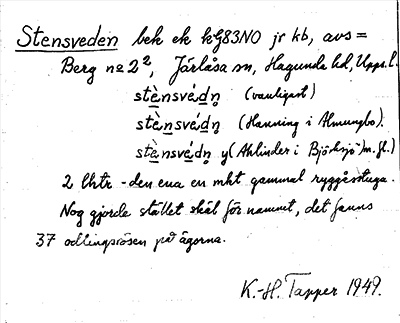 Stensveden bek ek kG83NO jr kb, avs =
Berg no 2², Järlåsa sn, Hagunda hd, Upps. l.
stènsvédn̥ (vanligast)
stènsvédn̥ (Hanning i Almungbo).
stènsvédn̥ y (Ahlinder i Björksjö m. fl.)
2 lhtr - den ena en mkt gammal ryggåsstuga.
Nog gjorde stället skäl för namnet, det fanns
37 odlingsrösen på ägorna.
K.-H. Tapper 1949.